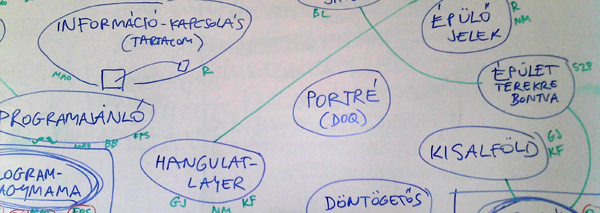 BL
R
NM
INFORMÁCIÓ-KAPCSOLÁS
(TARTALOM)
MAO
R
ÉPÜLŐ
JELEK
ÉPÜLET
TEREKRE
BONTVA
SZB
PORTRÉ
(DOQ)
PROGRAMAJÁNLÓ
BB
EPS
HANGULAT-
LAYER
GJ
NM
KF
KISALFÖLD
GJ
KF
DÖNTÖGETŐS